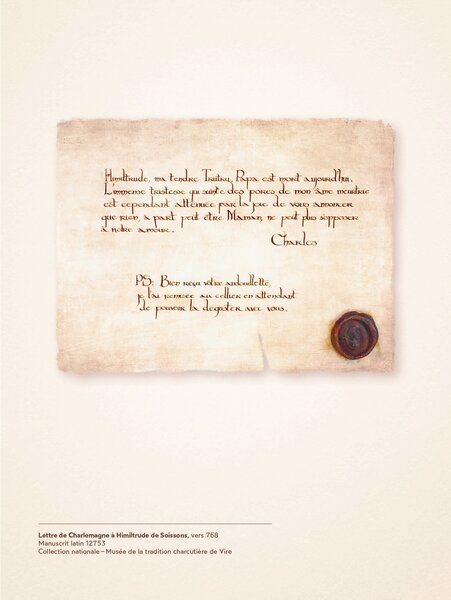 Himiltrude, ma tendre Trutru, Papa est mort aujourd'hui.
L'immense tristesse qui suinte des pores de mon âme meurtrie
est cependant atténuée par la joie de vous annoncer
que rien, à part peut être Maman, ne peut plus s'opposer
à notre amour.
Charles
PS: Bien reçu vôtre andouillette,
je l'ai remisée au cellier en attendant
de pouvoir la déguster avec vous.
Lettre de Charlemagne à Himiltrude de Soissons, vers 768
Manuscrit latin 12753
Collection nationale – Musée de la tradition charcutière de Vire